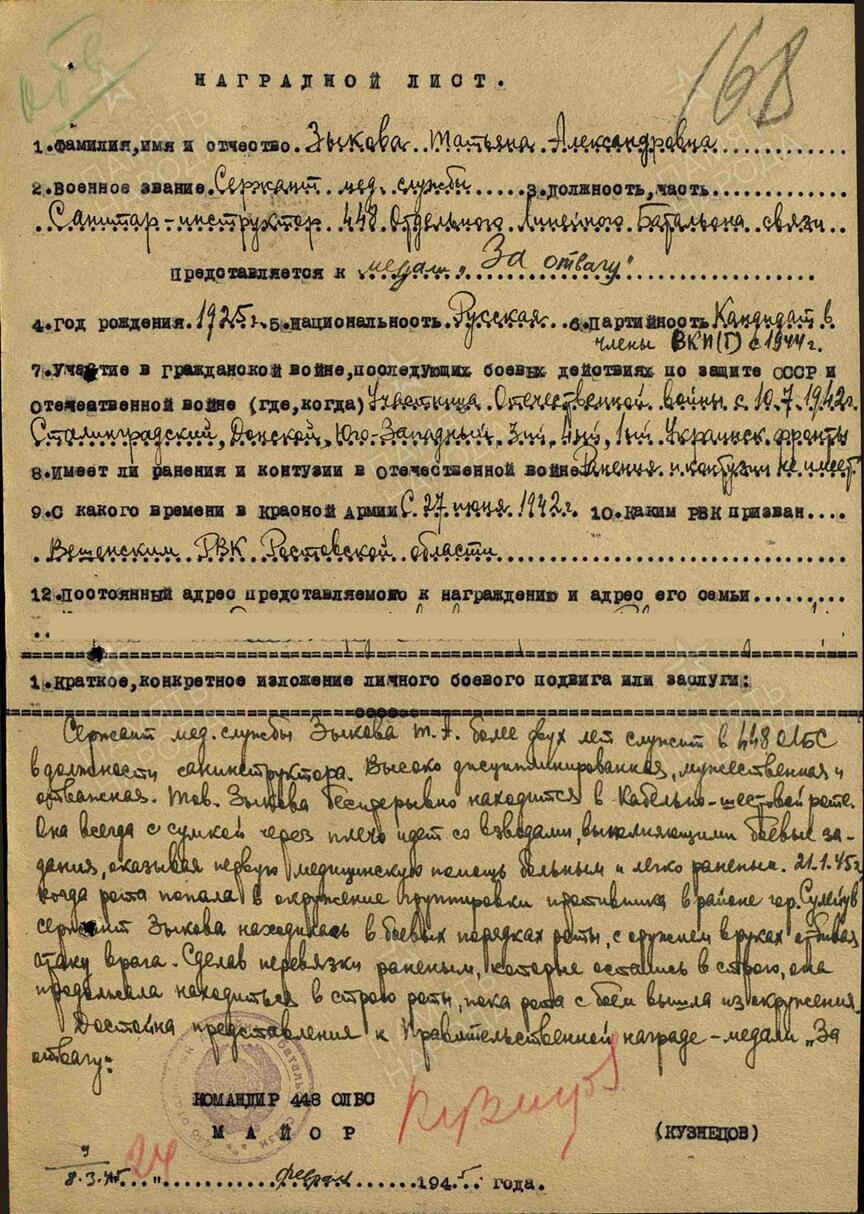 отв
168
НАГРАДНОЙ ЛИСТ.
1.Фамилия,имя и отчество. Зыкова Татьяна Александровна
2.Военное звание. Сержант мед. службы 3.Должность,часть
Санитар-инструктор 448 Отдельного Линейного Батальона связи
Представляется к медали „За отвагу"
4.Год рождения. 1925 г. 5.Национальность. Русская 6.Партийность Кандидат в
члены ВКП(б) с 1944 г.
7.Участие в гражданской войне,последующих боевых действиях по защите СССР и
отечеатвенной войне (где,когда) Участница Отечественной войны с 10.7.1942г.
Сталинградский, Донской, Юго-Западный, 3ий, 4ый, 1ый Украинск. фронты
8.Имеет ли ранения и контузии в Отечественной войне Ранения и контузии не имеет
9.С какого времени в Красной Армии С 27 июня 1942г. 10.Каким РВК призван....
Вешенским РВК Ростовской области
12.Постоянный адрес представляемого к награждению и адрес его семьи.........
1.Краткое,конкретное изложение личного боевого подвига или заслуги:
Сержант мед. службы Зыкова Т. А. более двух лет служит в 448 ОЛБС
в должности санинструктора. Высоко дисциплинированная, мужественная и
отважная. Тов. Зыкова беспрерывно находится в Кабельно-шестовой роте.
Она всегда с сумкой через плечо идет со взводами, выполняющими боевые за-
дания, оказывая первую медицинскую помощь больным и легко раненым. 21.1.45г
когда рота попала в окружение группировки противника в районе гор.
сержант Зыкова находилась в боевых порядках роты, с оружием в руках отбивая
атаку врага. Сделав перевязки раненым, которые остались в строю, она
продолжала находиться в строю роты, пока рота с боем вышла из окружения.
Достойна представления к Правительственной награде - медали „За
отвагу".
КОМАНДИР 448 ОЛБС
МАЙОР (КУЗНЕЦОВ)
8.3.45 24 " февраля 1945 года.